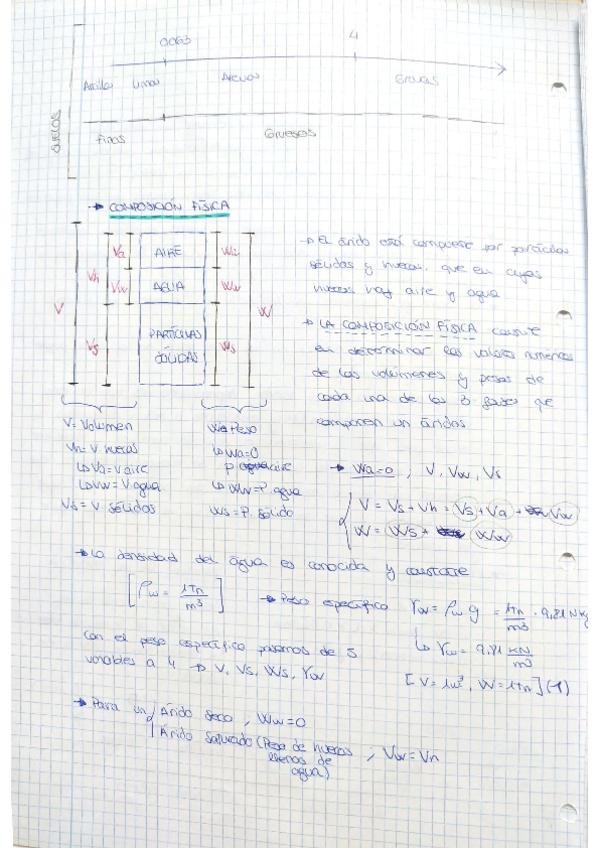 0063 4
Arcillas Limos Arenas Gravas
SUELOS
Finos Gruesos
→ COMPOSICIÓN FÍSICA
V Vh Va Vw Vs
AIRE
AGUA
PARTÍCULAS
SÓLIDAS
Wa Ww Ws W
→ El árido está compuesto por partículas
sólidas y huecos, que en cuyos
huecos hay aire y agua
→ LA COMPOSICIÓN FÍSICA consiste
en determinar los valores numéricos
de los volúmenes y pesos de
cada una de las 3 fases que
componen un áridos
V = Volumen
Vh = V huecos
↳ Va = V aire
↳ Vw = V agua
Vs = V sólidos
W = Peso
↳ Wa = 0
P aire
↳ Ww = P. agua
Ws = P. sólido
→ Wa = 0, V, Vw, Vs
V = Vs + Vh = Vs + Va + Vw
W = Ws + Ww
→ La densidad del agua es conocida y constante
[ρw = 1Tn/m³] → Peso específico γw = ρw g = 1Tn/m³ · 9,81 N/kg
↳ γw = 9,81 KN/m³
Con el peso específico pasamos de 5
variables a 4 → V, Vs, Ws, γw
[V = 1m³, W = 1Tn] (-1)
→ Para un Árido seco, Ww = 0
Árido saturado (Peso de huecos
llenos de
agua), Vw = Vh